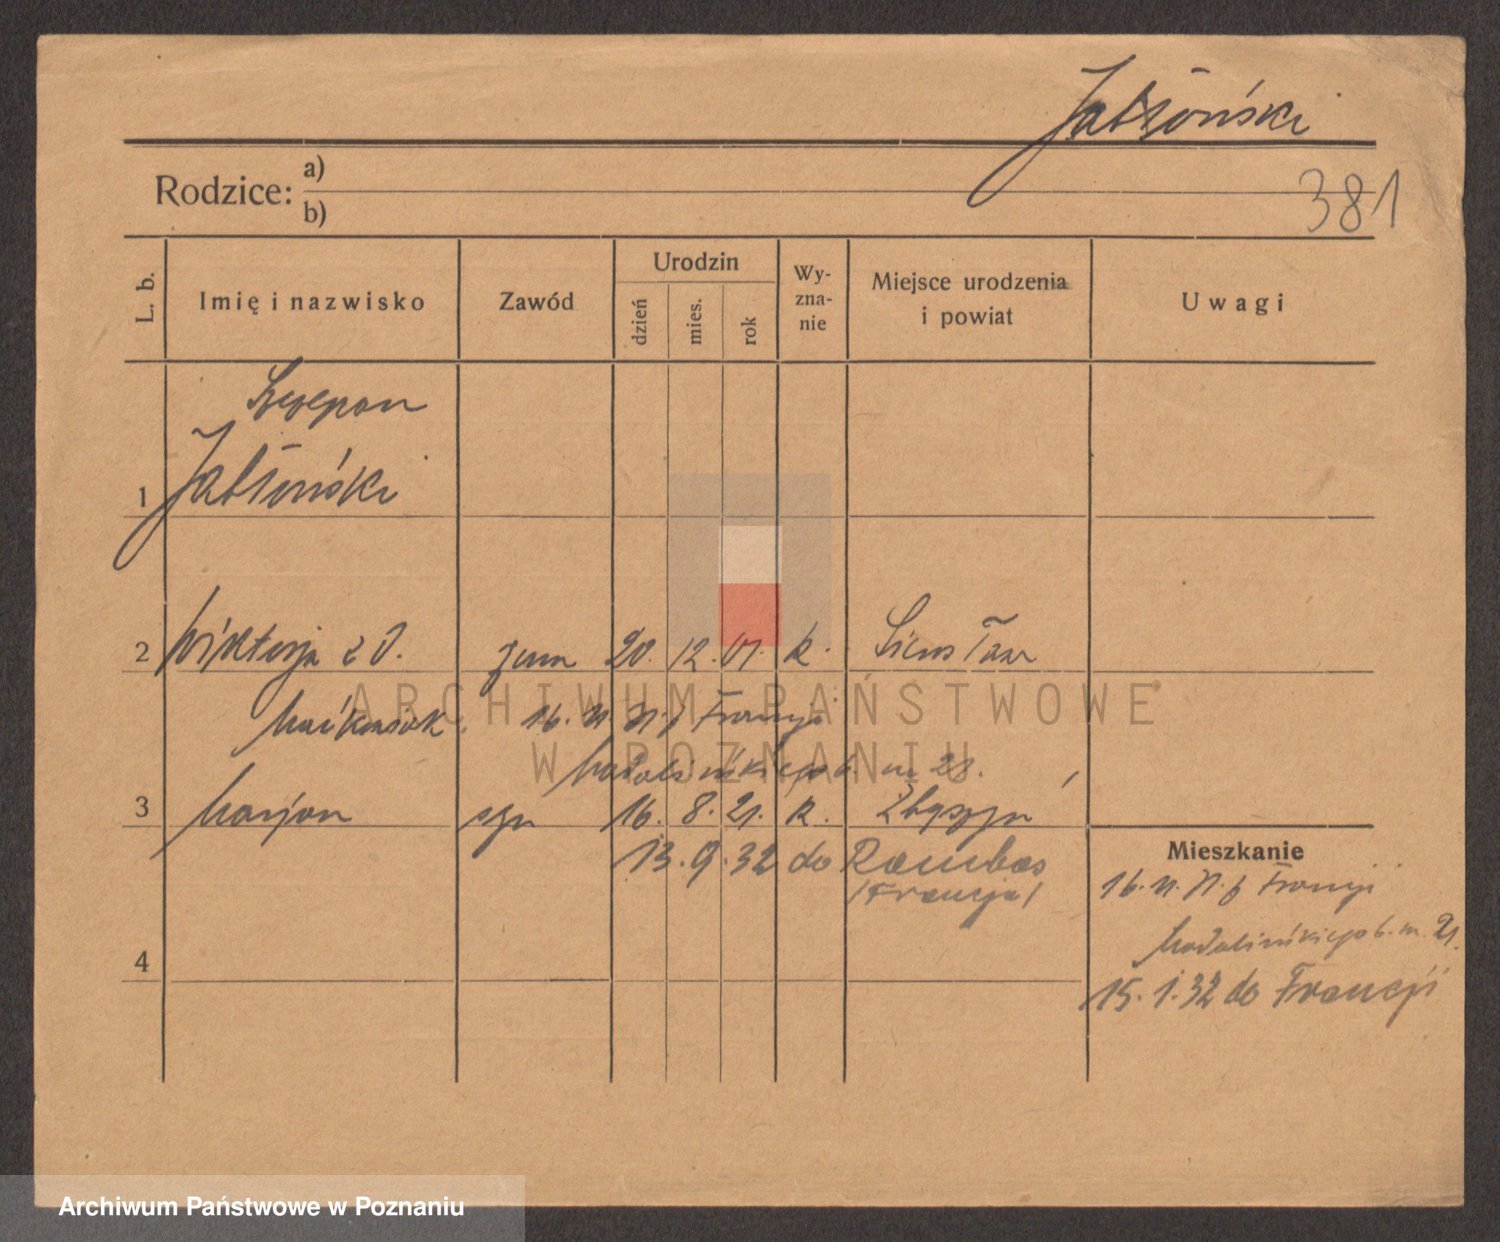 Jabłoński
381
Rodzice: a)
b)
L. b. Imię i nazwisko Zawód Urodzin dzień mies. rok Wyznanie Miejsce urodzenia i powiat Uwagi
Szczepan
1 Jabłoński
2 Wiktorja z d. żona 20. 12. 01. k.
16. 11. 31. z Francji
ARCHIWUM PAŃSTWOWE
W POZNANIU
Madalińskiego 6. m 21.
3 Marjan syn 16. 8. 21. k. Zbąszyń
13. 9. 32 do Rombas
/Francja/
Mieszkanie
16. 11. 31. z Francji
Madalińskiego 6. m. 21.
4
15. 1. 32 do Francji
Archiwum Państwowe w Poznaniu